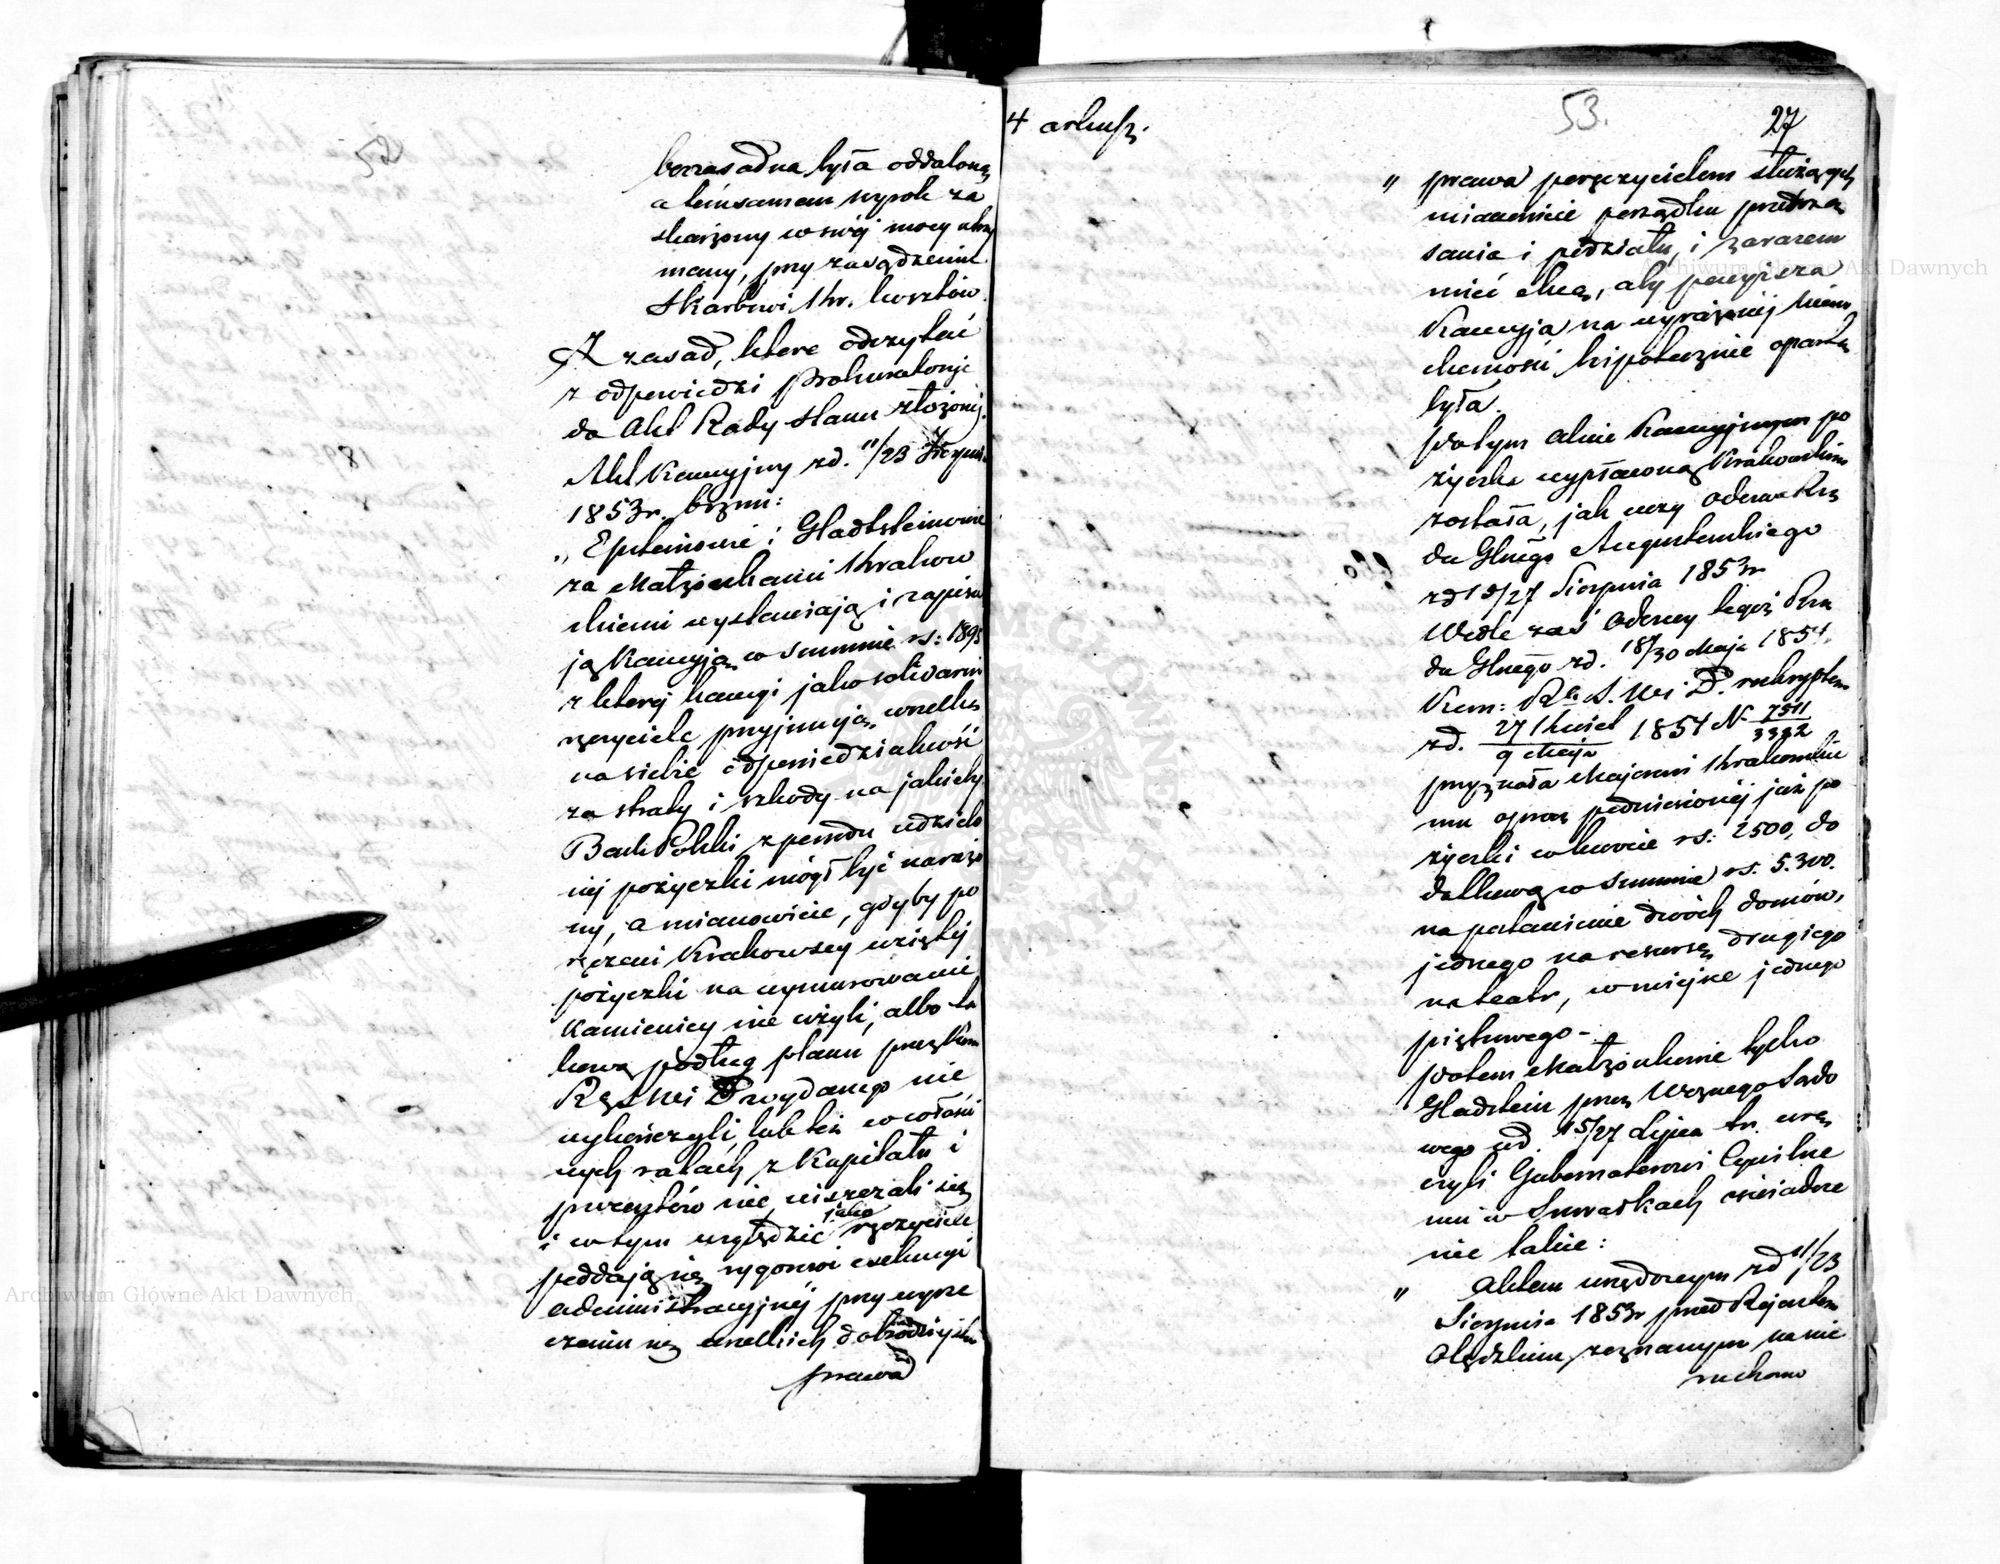 52
bezzasadna była oddaloną
a témsamem wyrok za
skarżony w swéj mocy utrzy
many, przy zasądzeniu
Skarbowi Kr. kosztów.
Z zasad, które odczytać
z odpowiedzi Prokuratoryi
do Akt Rady Stanu złożonéj.
Akt Kaucyjny zd. 11/23 Sierpnia
1853r. brzmi:
„Epsteinowie i Gladtsteinowie
za Małżonkami Krakow
skiemi wystawiają i zapisu
ją Kaucyją w summie rs: 1895
z któréj kaucyi jako solidarni
ręczyciele przyjmują wszelką
na siebie odpowiedzialność
za straty i szkody na jakieby
Bank Polski z powodu udzielo
néj pożyczki mógł być narażo
ny, a mianowicie, gdyby po
rzeczeni Krakowscy wziętéj
pożyczki na wymurowanie
Kamienicy nie użyli, albo ta
kową podług planu przez Kom
Rz. S. W. i D. wydanego nie
wykończyli, lub téż w właści
wych ratach z Kapitału i
procentów nie uiszczali się
i w tym względzie jako ręczyciele
poddają się rygorowi exekucyi
administracyjnéj przy wyrze
czeniu się wszelkich dobrodziejstw
prawa
4 arkusz.
53.
27
" prawa poręczycielom służących
mianowicie porządku przetrzą
sania i podziału, i zarazem
mieć chcą, aby powyższa
Kaucyja na wyrażonéj nieru
chomości hipotecznie opartą
była.
Po tym akcie Kaucyjnym po
życzka wypłaconą Krakowskim
została, jak uczy odezwa Rzą
du Gbnego Augustowskiego
zd 15/27 Sierpnia 1853r
Wedle zaś odezwy tegoż Rzą
du Gbnego zd. 18/30 Maja 1854,
Kom: Rz. S. W. i D. reskryptem
zd. 27 Kwiet / 9 Maja 1854 N 7511/3382
przyznała Majerowi Krakowskie
mu oprócz podniesionéj już po
życzki w kwocie rs: 2500, do
datkową w summie rs. 5.300.
na postawienie dwóch domów,
jednego na resursę, drugiego
na teatr, w miejsce jednego
piętrowego –
Potem Małżonkowie tylko
Gladstein przez Woźnego Sądo
wego ud. 15/27 Lipca tr. wrę
czyli Gubernatorowi Cywilne
mu w Suwałkach oświadcze
nie takie:
" Aktem urzędowym zd 11/23
Sierpnia 1853r przed Rejentem
Olędzkim zeznanym na nie
ruchomo